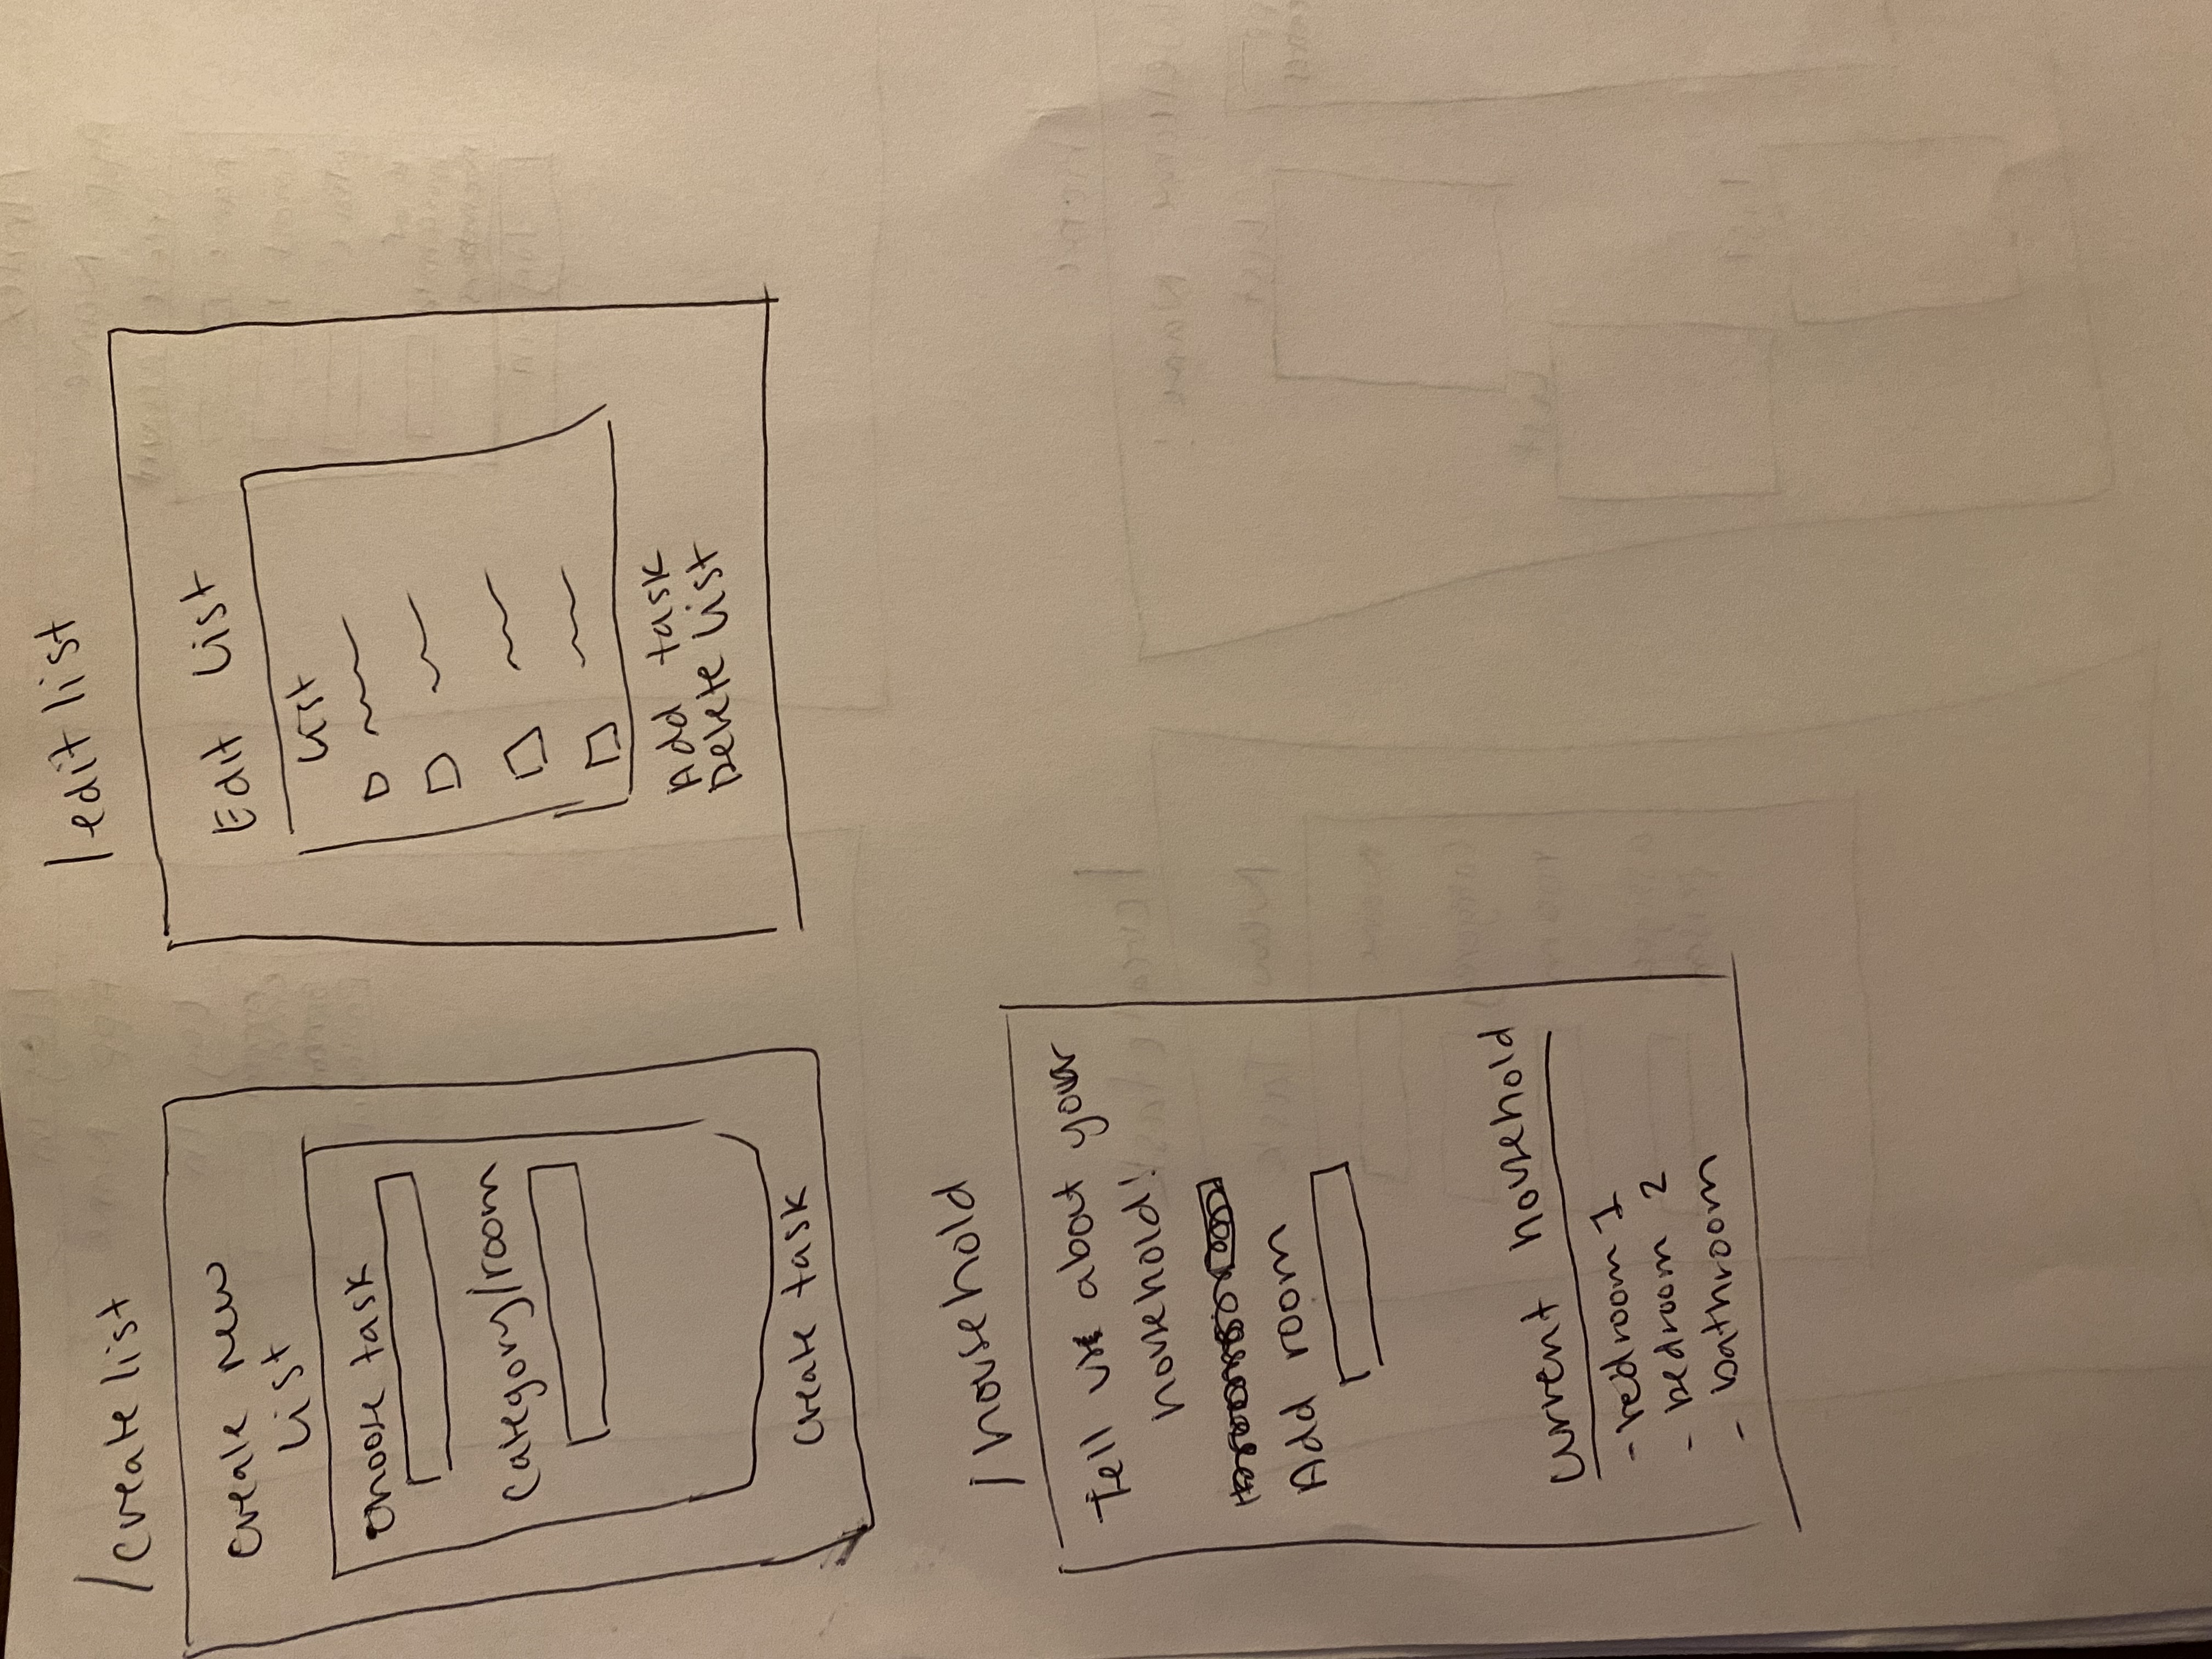 /create list
Create new
List
Choose task
Category/room
Create task
/edit list
Edit List
List
Add task
Delete List
/household
Tell us about your
household!
Add room
Current household
- bedroom 1
- bedroom 2
- bathroom